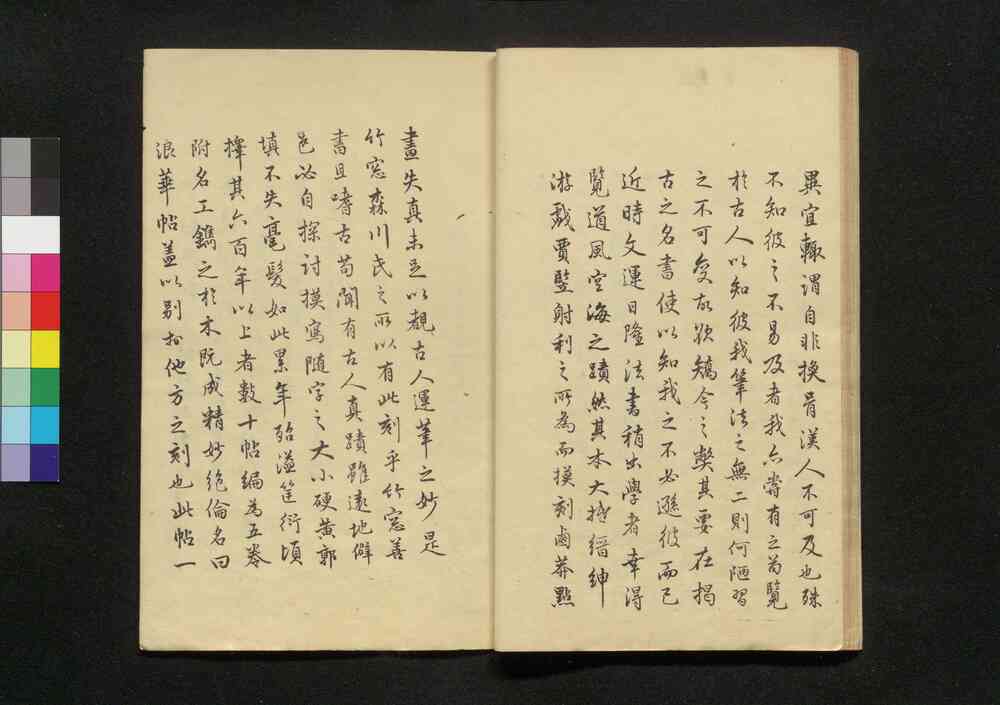 異宜輙謂自非換骨漢人不可及也殊
不知彼之不易及者我亦嘗有之苟覽
於古人以知彼我筆法之無二則何陋習
之不可変故欲矯今之弊其要在揭
古之名書使以知我之不必遜彼而已
近時文運日隆法書稍出學者幸得
覽道風空海之蹟然其本大抵縉紳
游戲賈竪射利之所為而摸刻鹵莽點
畫失真未足以観古人運筆之妙是
竹窓森川氏之所以有此刻乎竹窓善
書且嗜古苟聞有古人真蹟雖遠地僻
邑必自探討摸寫随字之大小硬黄郭
填不失毫髮如此累年殆溢筐衍頃
擇其六百年以上者数十帖編為五卷
附名工鐫之於木既成精妙絶倫名曰
浪華帖盖以別於他方之刻也此帖一